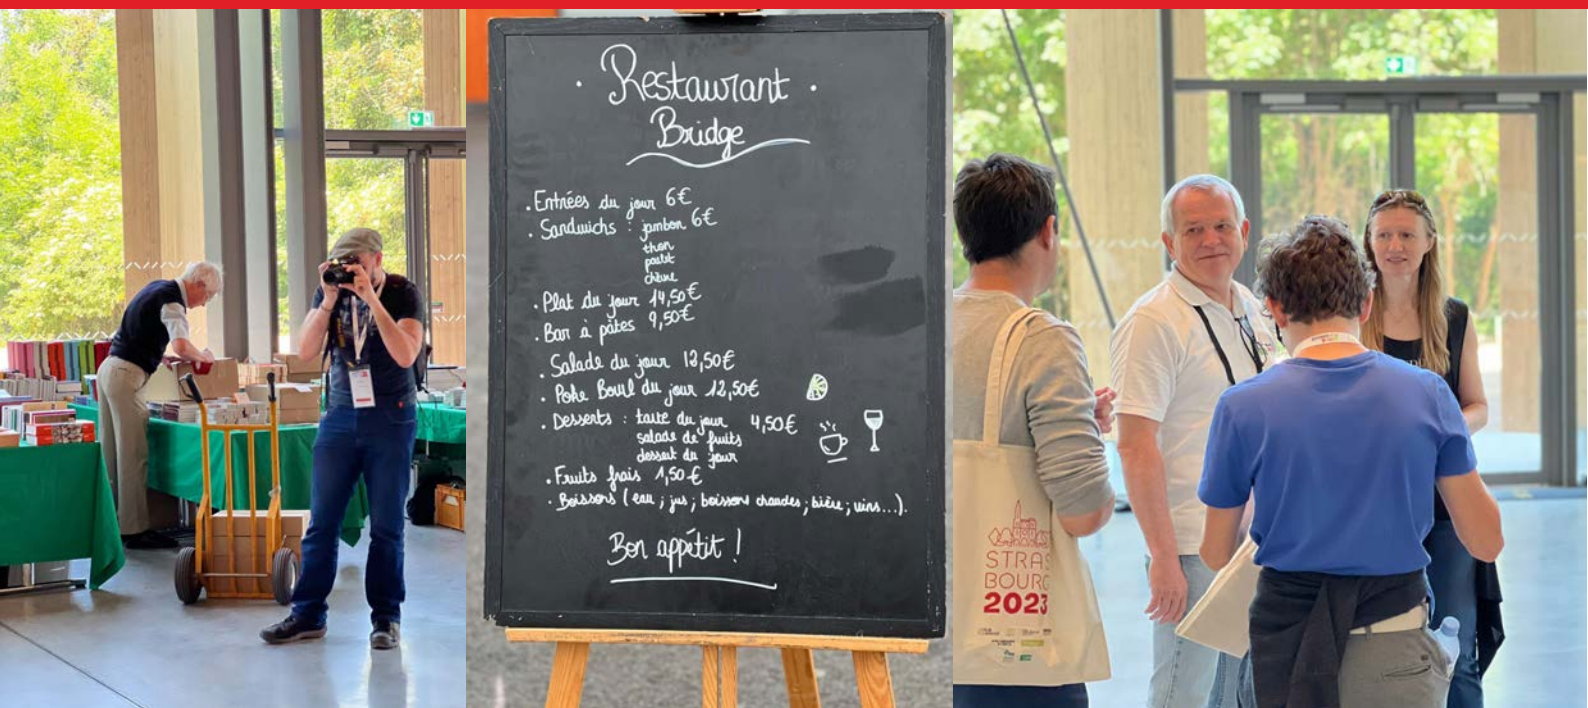 · Restaurant ·
Bridge
· Entrées du jour 6€
· Sandwichs : jambon 6€
thon
poulet
chèvre
· Plat du jour 14,50€
· Bar à pâtes 9,50€
· Salade du jour 12,50€
· Poke Bowl du jour 12,50€
· Desserts : tarte du jour 4,50€
salade de fruits
dessert du jour
· Fruits frais 1,50€
· Boissons (eau ; jus ; boissons chaudes ; bière ; vins...).
Bon appétit !
STRAS
BOURG
2023